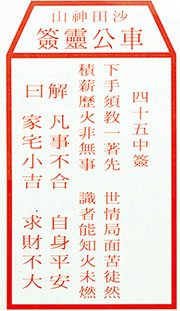 沙田神山
車公靈簽
四十五中簽
下手須教一著先 世情局面苦徒然
積薪歷火非無事 識者能知火未燃
解 凡事不合 自身平安
曰 家宅小吉 求財不大